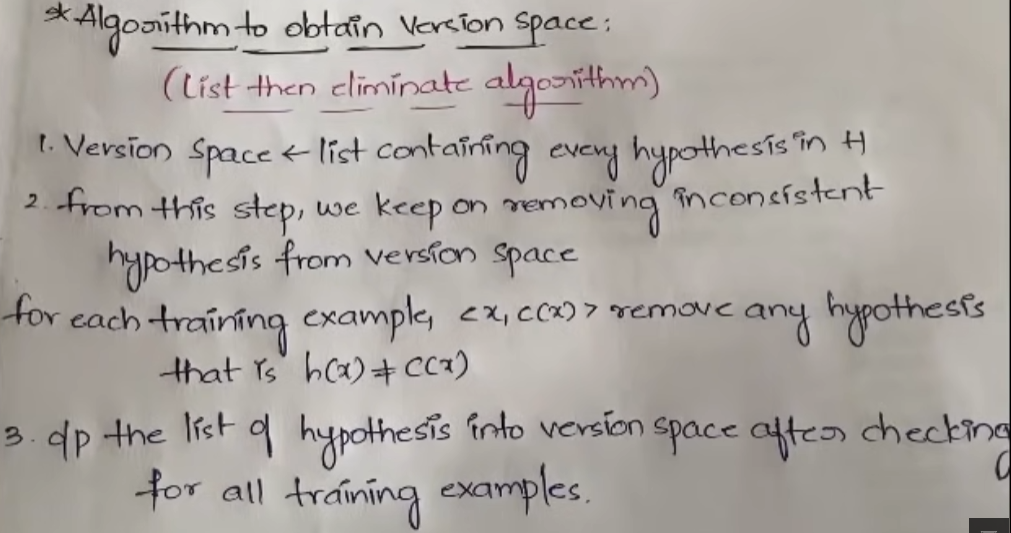 * Algorithm to obtain Version Space:
(List then eliminate algorithm)
1. Version Space ← list containing every hypothesis in H
2. from this step, we keep on removing inconsistent
hypothesis from version space
for each training example, <x, c(x)> remove any hypothesis
that is h(x) ≠ c(x)
3. o/p the list of hypothesis into version space after checking
for all training examples.